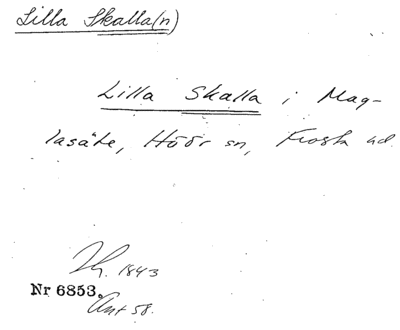 Lilla Skalla(n)
Lilla Skalla i Mag-
lasäte, Höör sn, Frosta hd.
1843
Nr 6853.
Ant 58.